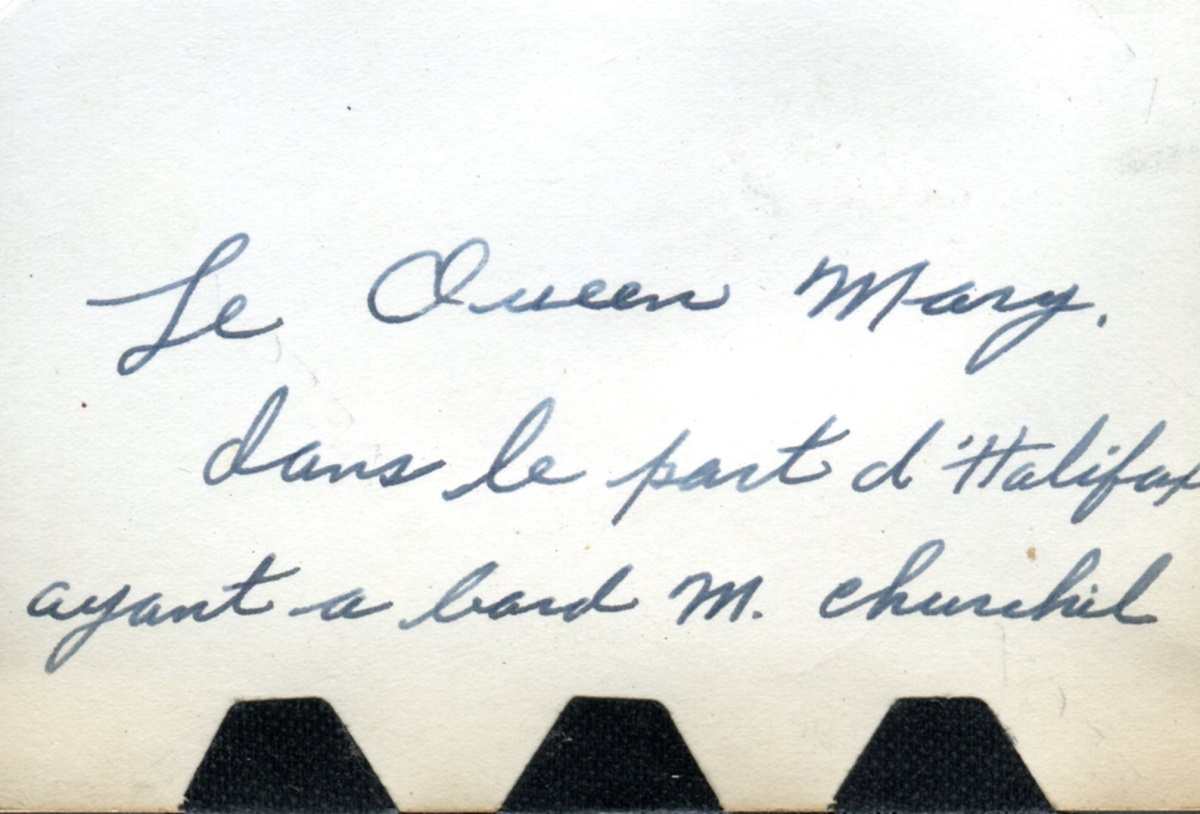 Le Queen Mary.
dans le port d'Halifax
ayant a bord M. Churchil